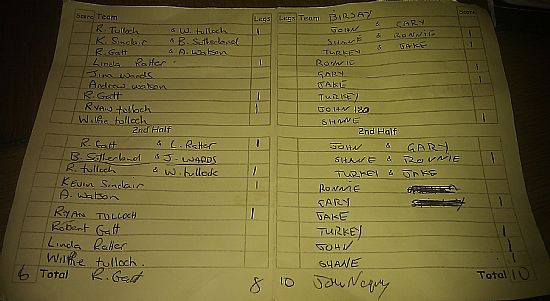 Score Team Legs Legs Team BIRSAY Score
R. Tulloch & W. Tulloch 1 JOHN & GARY
K. Sinclair & B. Sutherland SHANE & RONNIE 1
R. Gatt & A. Watson TURKEY & JAKE 1
Linda Ratter 1 RONNIE
Jina Wards GARY 1
Andrew Watson JAKE 1
R. Gatt 1 TURKEY
RYAN Tulloch 1 JOHN 120
Wilfie tulloch SHANE 1
2nd Half 2nd Half
R. Gatt & L. Ratter 1 JOHN & GARY
B. Sutherland & J. WARDS SHANE & RONNIE 1
R. tulloch & W. tulloch 1 TURKEY & JAKE
KEVIN Sinclair 1 RONNIE
A. Watson GARY 1
RYAN TULLOCH 1 JAKE
Robert Gatt TURKEY 1
Linda Ratter JOHN 1
Wilfie tulloch. SHANE 1
6 Total R. Gatt 8 10 John Total 10